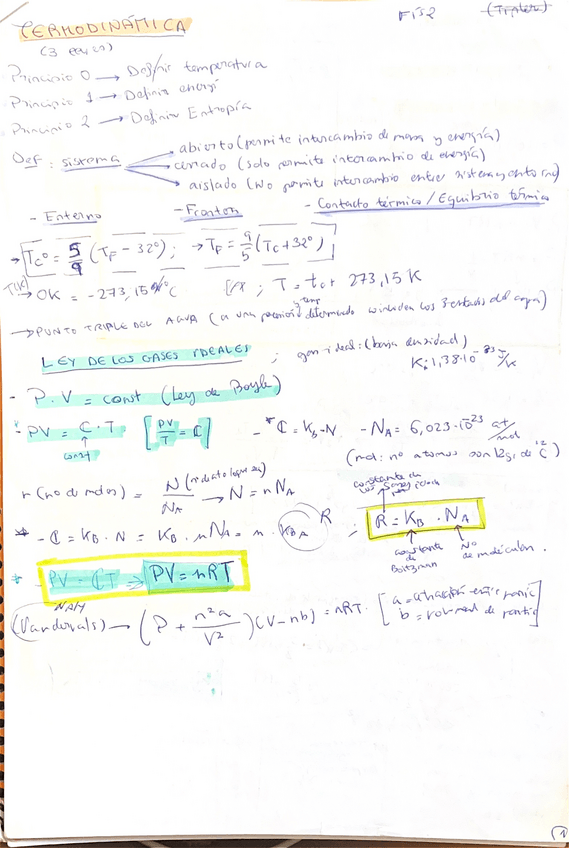 TERMODINÁMICA
FIS2
Principio 0 → Definir temperatura
Principio 1 → Definir energí
Principio 2 → Definir Entropía
Def: sistema
abierto (permite intercambio de masa y energía)
cerrado (solo permite intercambio de energía)
aislado (No permite intercambio entre sistema y entorno)
- Entorno - Frontera - Contacto térmico / Equilibrio térmico
→ Tc° = 5/9 (TF - 32°); → TF = 9/5 (Tc + 32°)
T(K) → 0K = -273,15°C ; T = tc + 273,15 K
→ PUNTO TRIPLE DEL AGUA (a una presión y temp determinada coinciden los 3 estados del agua)
LEY DE LOS GASES IDEALES ; gas ideal: (baja densidad)
K: 1,38·10⁻²³ J/K
- P.V = const (Ley de Boyle)
- PV = C·T [PV/T = C] - * C = KB·N - NA = 6,023·10⁻²³ at/mol
const
(mol: no atomos con 12g. de ¹²C)
n (no de moles) = N/NA → N = nNA
constante de los gases
* - C = KB·N = KB·nNA = n· R ; R = KB·NA
constante de Boltzmann
No de moléculas.
* - PV = CT ⇒ PV = nRT
(Vanderwals) → (P + n²a/V²)(V - nb) = nRT.
a = atracción entre
b =